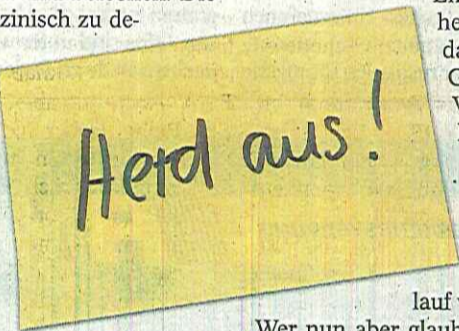 zinisch zu de-
Herd aus!
lauf
Wer nun aber glaub